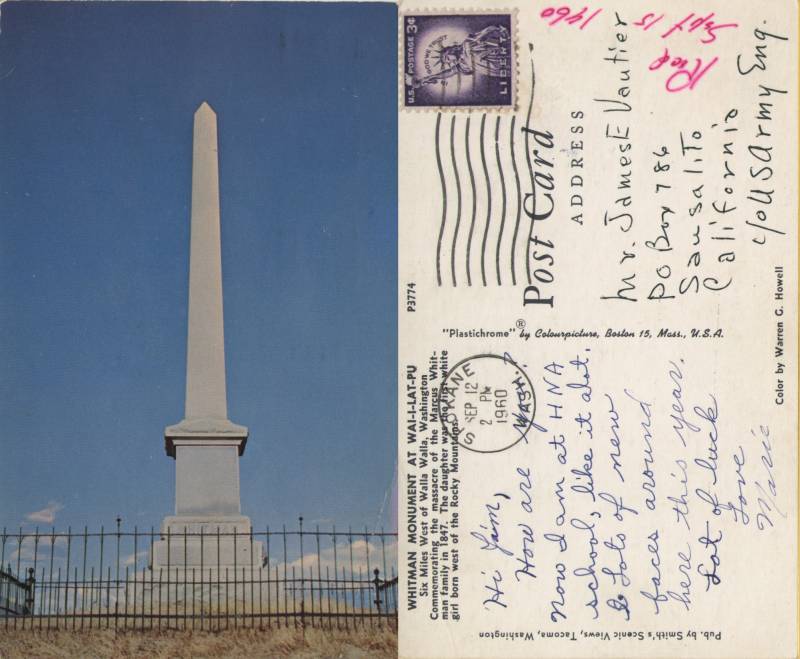 WHITMAN MONUMENT AT WAI-I-LAT-PU
Six Miles West of Walla Walla, Washington
Commemorating the massacre of the Marcus Whit-
man family in 1847. The daughter was the first white
girl born west of the Rocky Mountains.
P3774
"Plastichrome" ® by Colourpicture, Boston 15, Mass., U.S.A.
Pub. by Smith's Scenic Views, Tacoma, Washington
Color by Warren G. Howell
Post Card
ADDRESS
U.S. POSTAGE 3¢
IN GOD WE TRUST
LIBERTY
SPOKANE
SEP 12
2 PM
1960
WASH.
Sept 15
1960
Mr. James E Vautier
PO Box 786
Sausalito
California
c/o US Army Eng.
Hi Jim,
How are you?
Now I am at HNA
school, like it alot.
Lots of new
faces around
here this year.
Lot of luck
Love
Marie